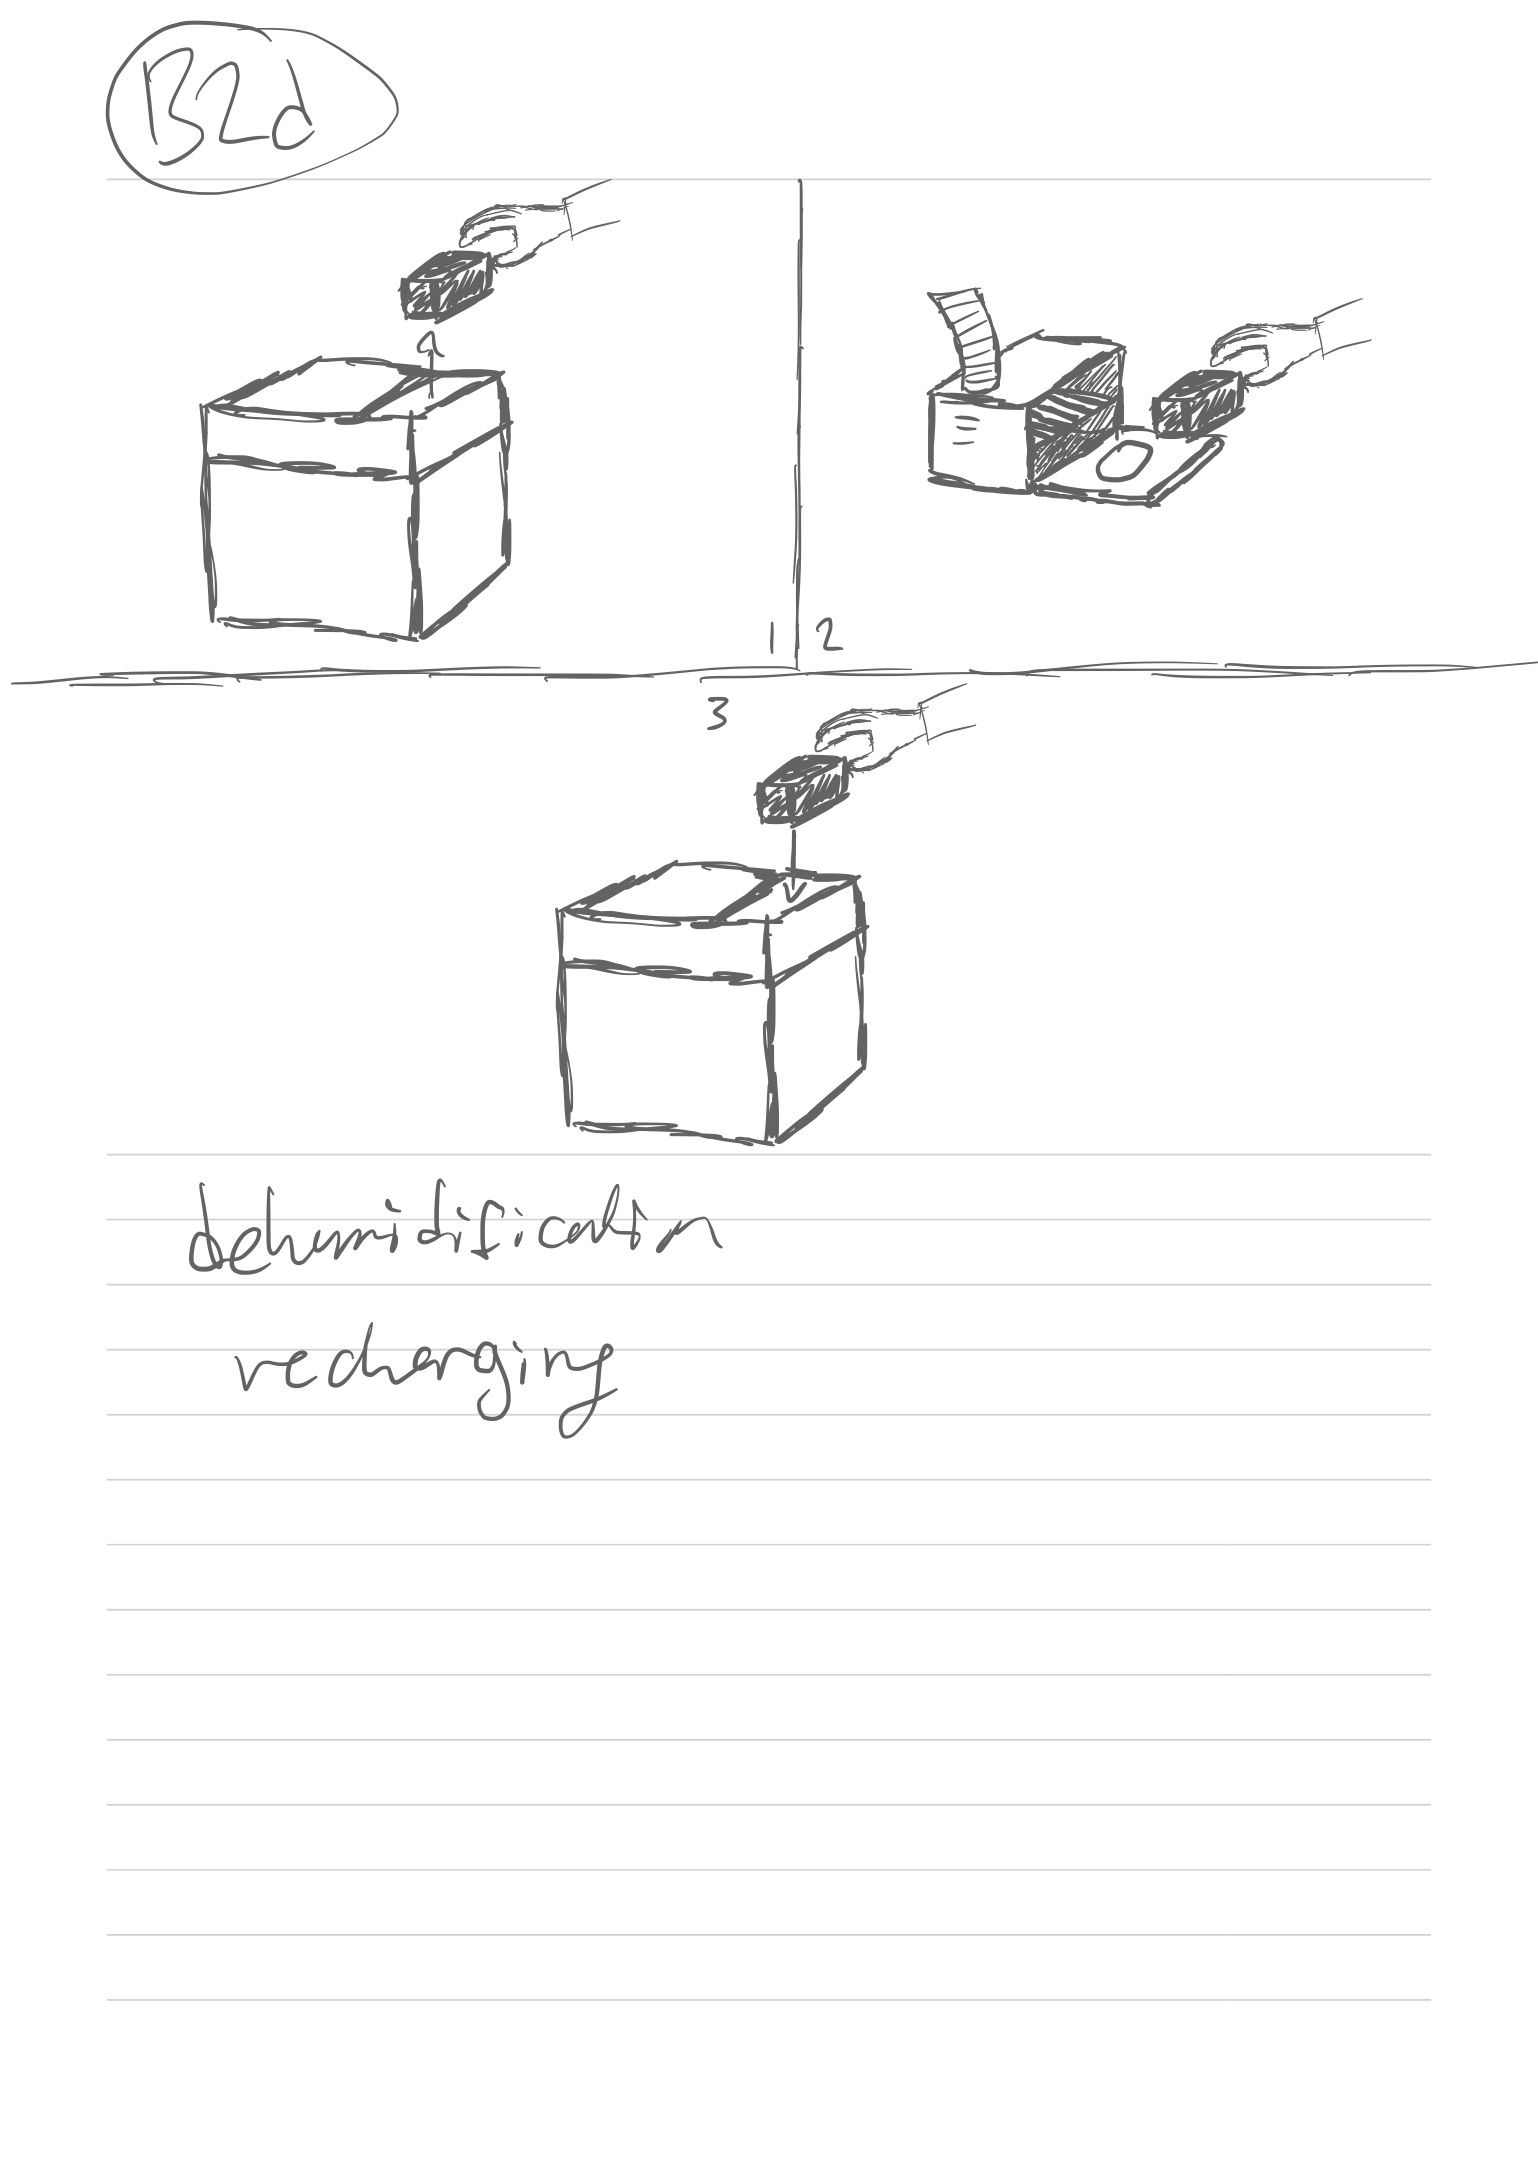 B2d
1
2
3
dehumidification
recharging